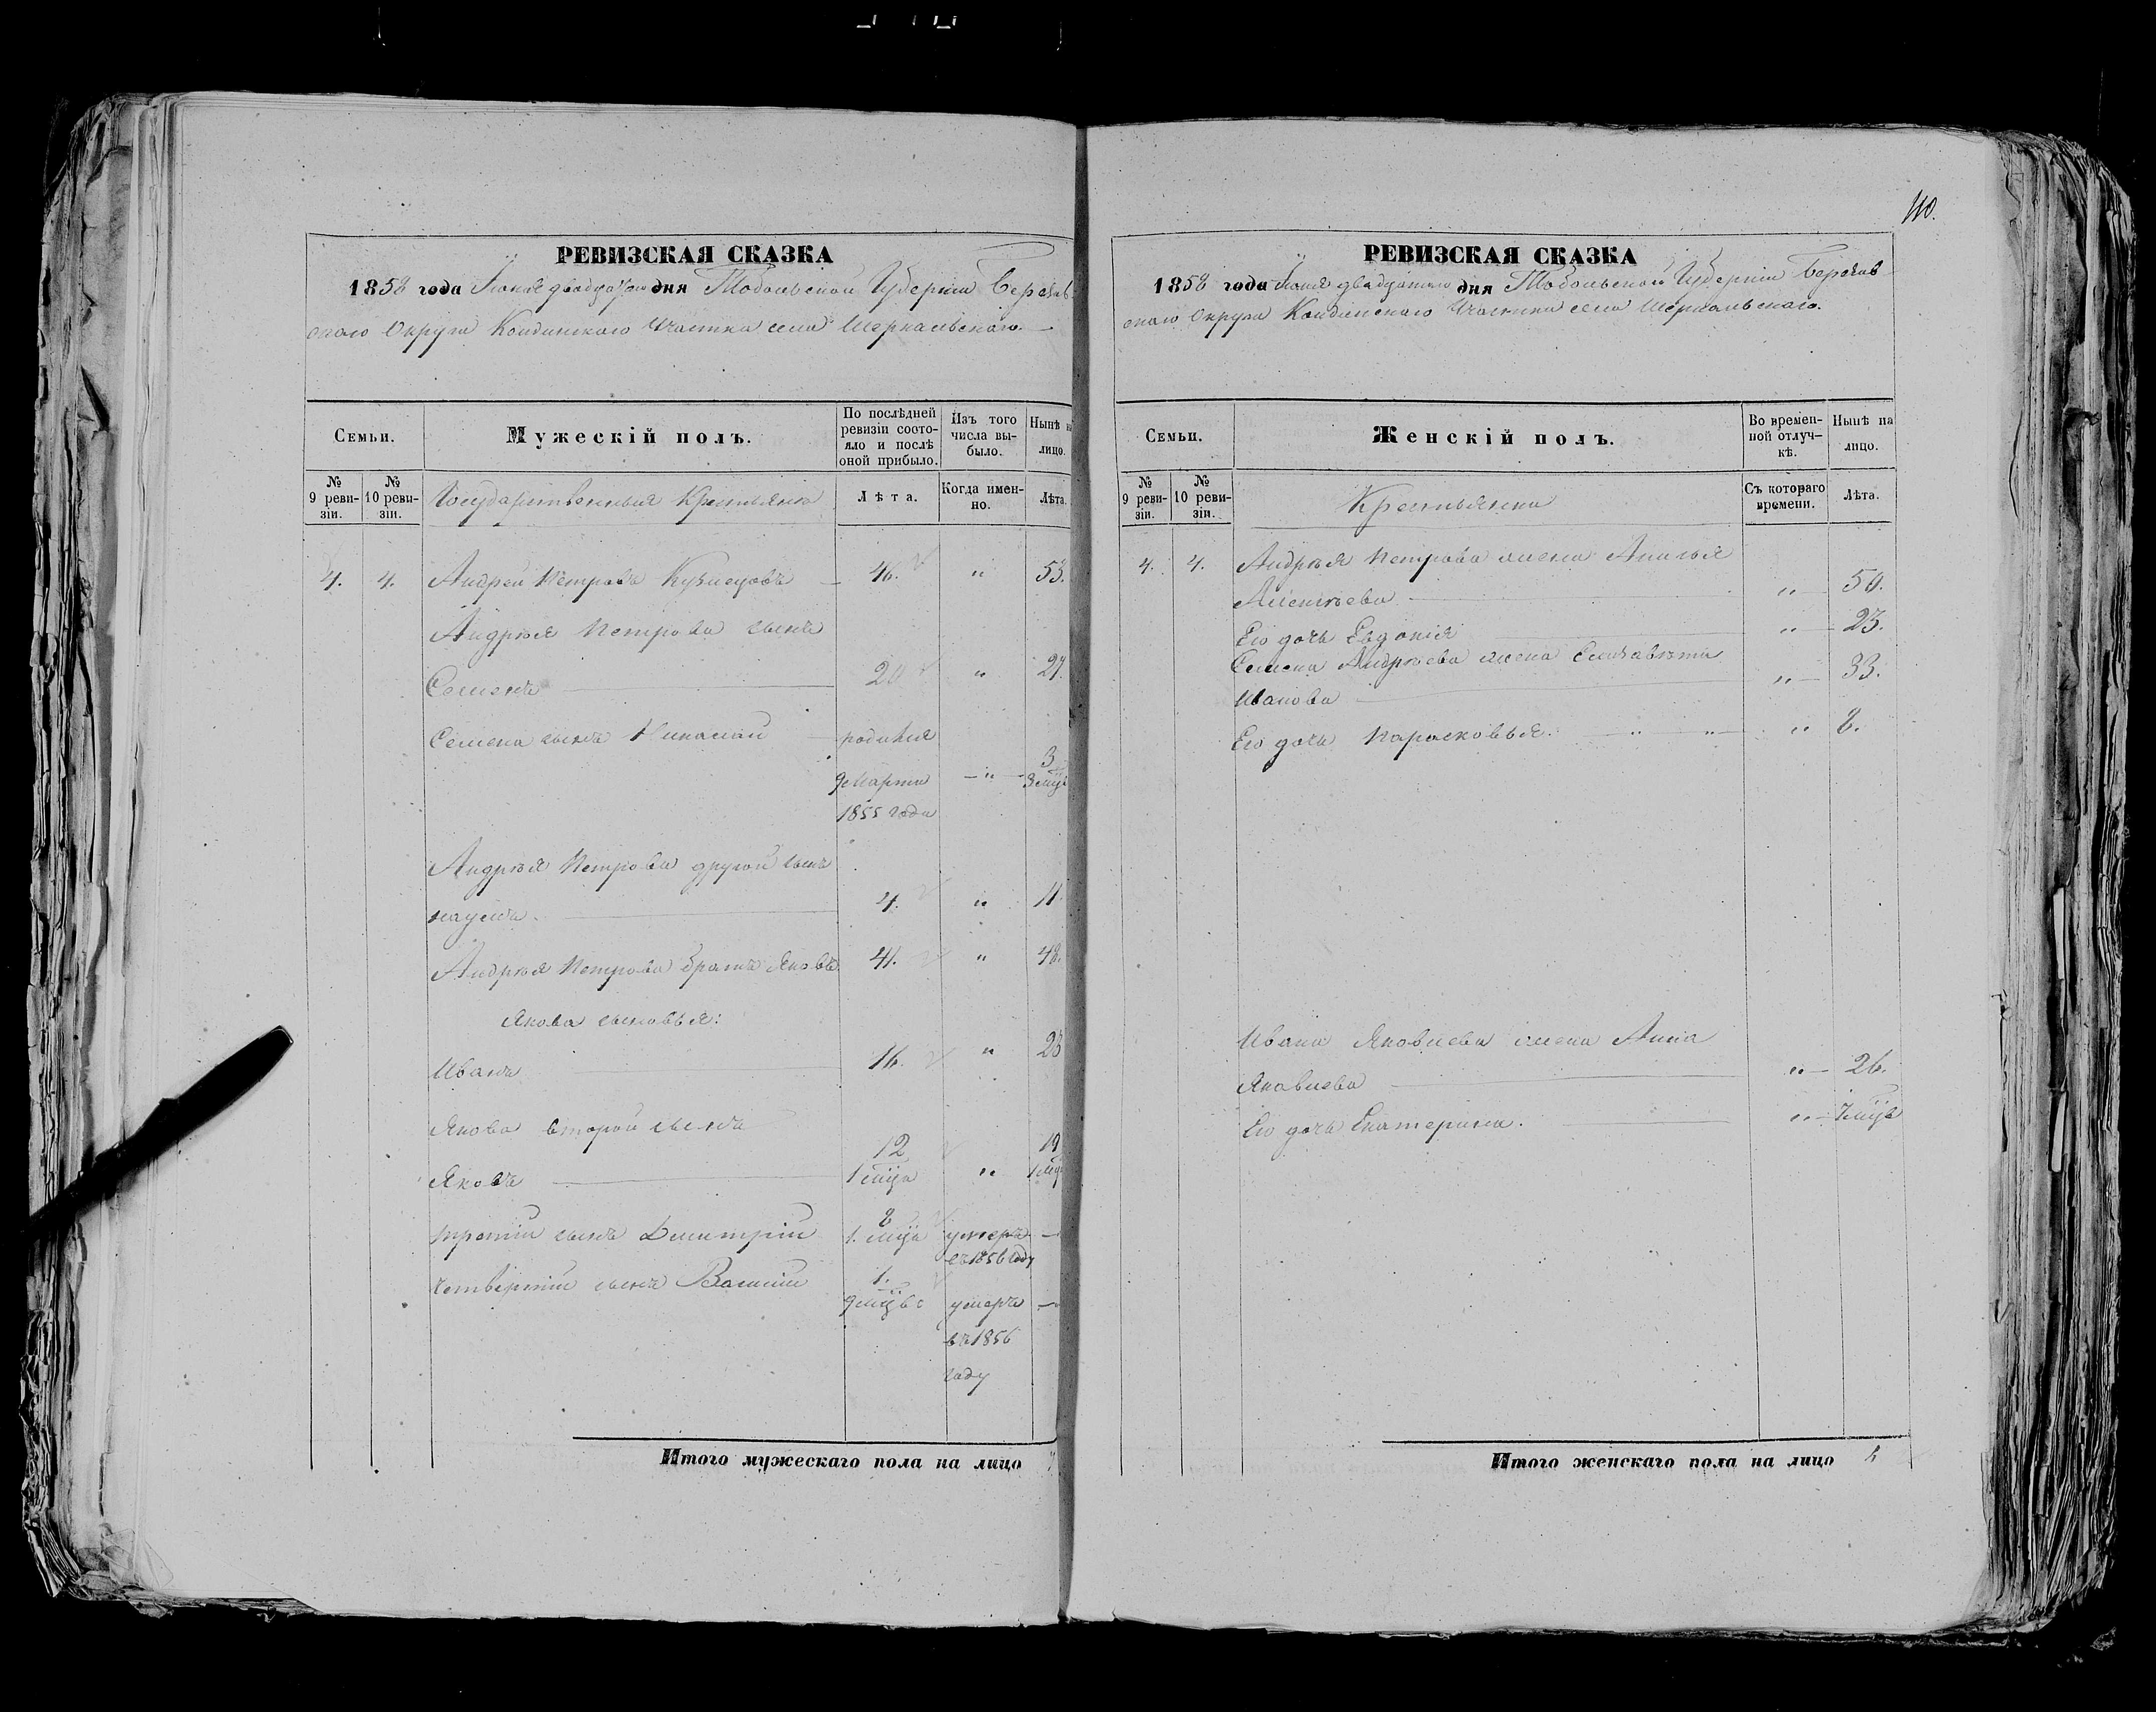 РЕВИЗСКАЯ СКАЗКА
1858 года Іюня двадцатаго дня Тобольской Губерніи Березов
скаго Округа Кондинскаго Участка села Шеркальскаго.
Семьи.
Мужескій полъ.
По послѣдней ревизіи состояло и послѣ оной прибыло.
Изъ того числа выбыло.
Нынѣ на лицо.
№ 9 ревизіи.
№ 10 ревизіи.
Государственныя Крестьяне
Лѣта.
Когда именно.
Лѣта.
4. 4. Андрей Петровъ Кузнецовъ — 46. " 53.
Андрея Петрова сынъ
Семенъ 20 " 27.
Семена сынъ Николай родился
9 Марта — " — 3
3 мца
1855 года
Андрея Петрова другой сынъ
Наумъ. 4. " 11
Андрея Петрова братъ Яковъ. 41. " 48.
Якова сыновья:
Иванъ 16. " 23
Якова второй сынъ
Яковъ 12 1 мца " 19 1 мца
третій сынъ Дмитрій 8 1. мца умеръ въ 1856 году —
четвертый сынъ Василій 1. 9 мцвъ умеръ —
въ 1856
году
Итого мужескаго пола на лицо
110.
РЕВИЗСКАЯ СКАЗКА
1858 года Іюня двадцатаго дня Тобольской Губерніи Березов
скаго Округа Кондинскаго Участка села Шеркальскаго.
Семьи.
Женскій полъ.
Во временной отлучкѣ.
Нынѣ на лицо.
№ 9 ревизіи.
№ 10 ревизіи.
Крестьянки
Съ котораго времени.
Лѣта.
4. 4. Андрея Петрова жена
Алексѣева " — 50.
Его дочь Евдокія " — 23.
Семена Андрѣева жена Елизавѣта
Иванова " — 33.
Его дочь Парасковья. " " — " 8.
Ивана Яковлева жена Анна
Яковлева " — 26.
Его дочь Екатерина. " — 7 мцвъ
Итого женскаго пола на лицо